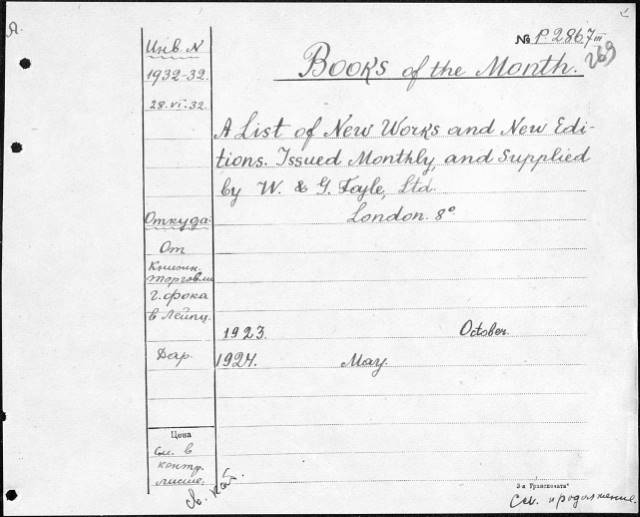 Я.
№ P.2867 III
269
Инв N
1932-32.
28.VI.32.
Books of the Month.
A List of New Works and New Edi-
tions. Issued Monthly, and Supplied
by W. & G. Foyle, Ltd.
London. 8°
Откуда:
От
Книжн.
торговли
г. Фока
в Лейпц.
1923. October.
Дар. 1924. May.
Цена
См. в
контр.
листе.
св. кат.
3-я Транспечать
См. продолжение.